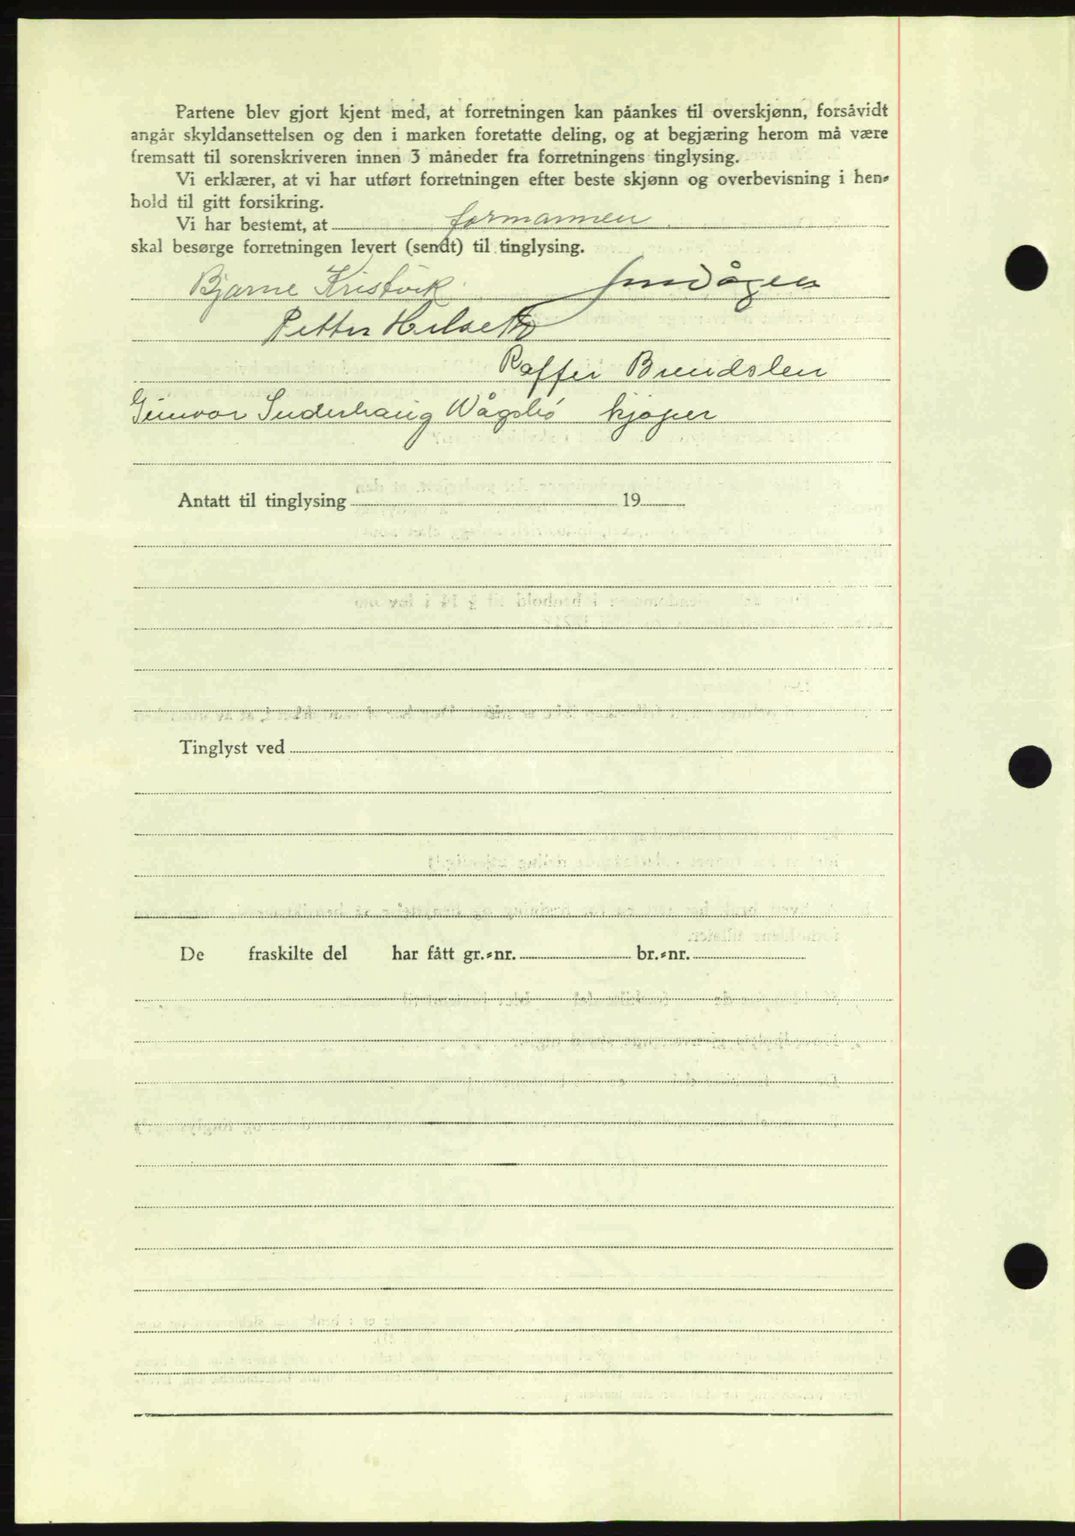 Partene blev gjort kjent med, at forretningen kan påankes til overskjønn, forsåvidt
angår skyldansettelsen og den i marken foretatte deling, og at begjæring herom må være
fremsatt til sorenskriveren innen 3 måneder fra forretningens tinglysing.
Vi erklærer, at vi har utført forretningen efter beste skjønn og overbevisning i hen-
hold til gitt forsikring.
Vi har bestemt, at formannen
skal besørge forretningen levert (sendt) til tinglysing.
Bjarne Kristvik
Petter Helseth
Brendslen
Gunvor Wågsbø kjøper
Antatt til tinglysing 19
Tinglyst ved
De fraskilte del har fått gr.-nr. br.-nr.